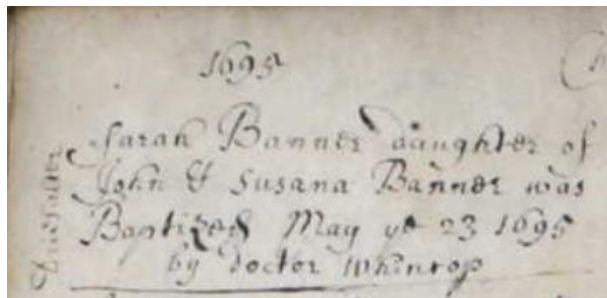 1695
Sarah Banner daughter of
John & Susana Banner was
Baptized May ye 23 1695
by doctor Whintop